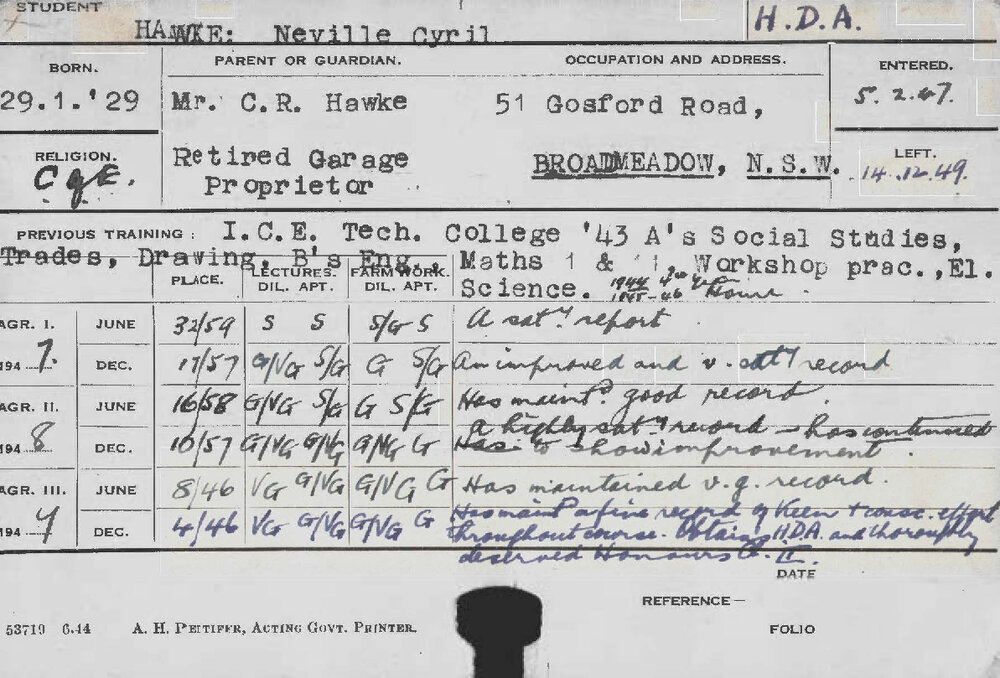 STUDENT
HAWKE: Neville Cyril
H.D.A.
BORN.
29.1.'29
PARENT OR GUARDIAN.
Mr. C.R. Hawke
Retired Garage
Proprietor
OCCUPATION AND ADDRESS.
51 Gosford Road,
BROADMEADOW, N.S.W.
ENTERED.
5.2.47.
RELIGION.
C of E.
LEFT.
14.12.49.
PREVIOUS TRAINING: I.C.E. Tech. College '43 A's Social Studies,
Trades, Drawing, B's Eng., Maths 1 & 11, Workshop prac., El.
Science. 1944
1945-46 Home
PLACE. LECTURES. DIL. APT. FARM WORK. DIL. APT.
AGR. I. JUNE 32/59 S S S/G S A sat.y report
1947. DEC. 17/57 G/VG S/G G S/G An improved and v. sat.y record
AGR. II. JUNE 16/58 G/VG S/G G S/G Has maint.d good record.
A highly sat.y record - has continued
1948 DEC. 10/57 G/VG G/VG G/VG G Has to show improvement.
AGR. III. JUNE 8/46 VG G/VG G/VG G Has maintained v.g. record.
1949 DEC. 4/46 VG G/VG G/VG G Has maint.d a fine record of keen + consc. effort
throughout course. Obtains H.D.A. and thoroughly
deserved Honours Cl. II.
DATE
REFERENCE—
FOLIO
53719 6.44 A. H. PETTIFER, ACTING GOVT. PRINTER.